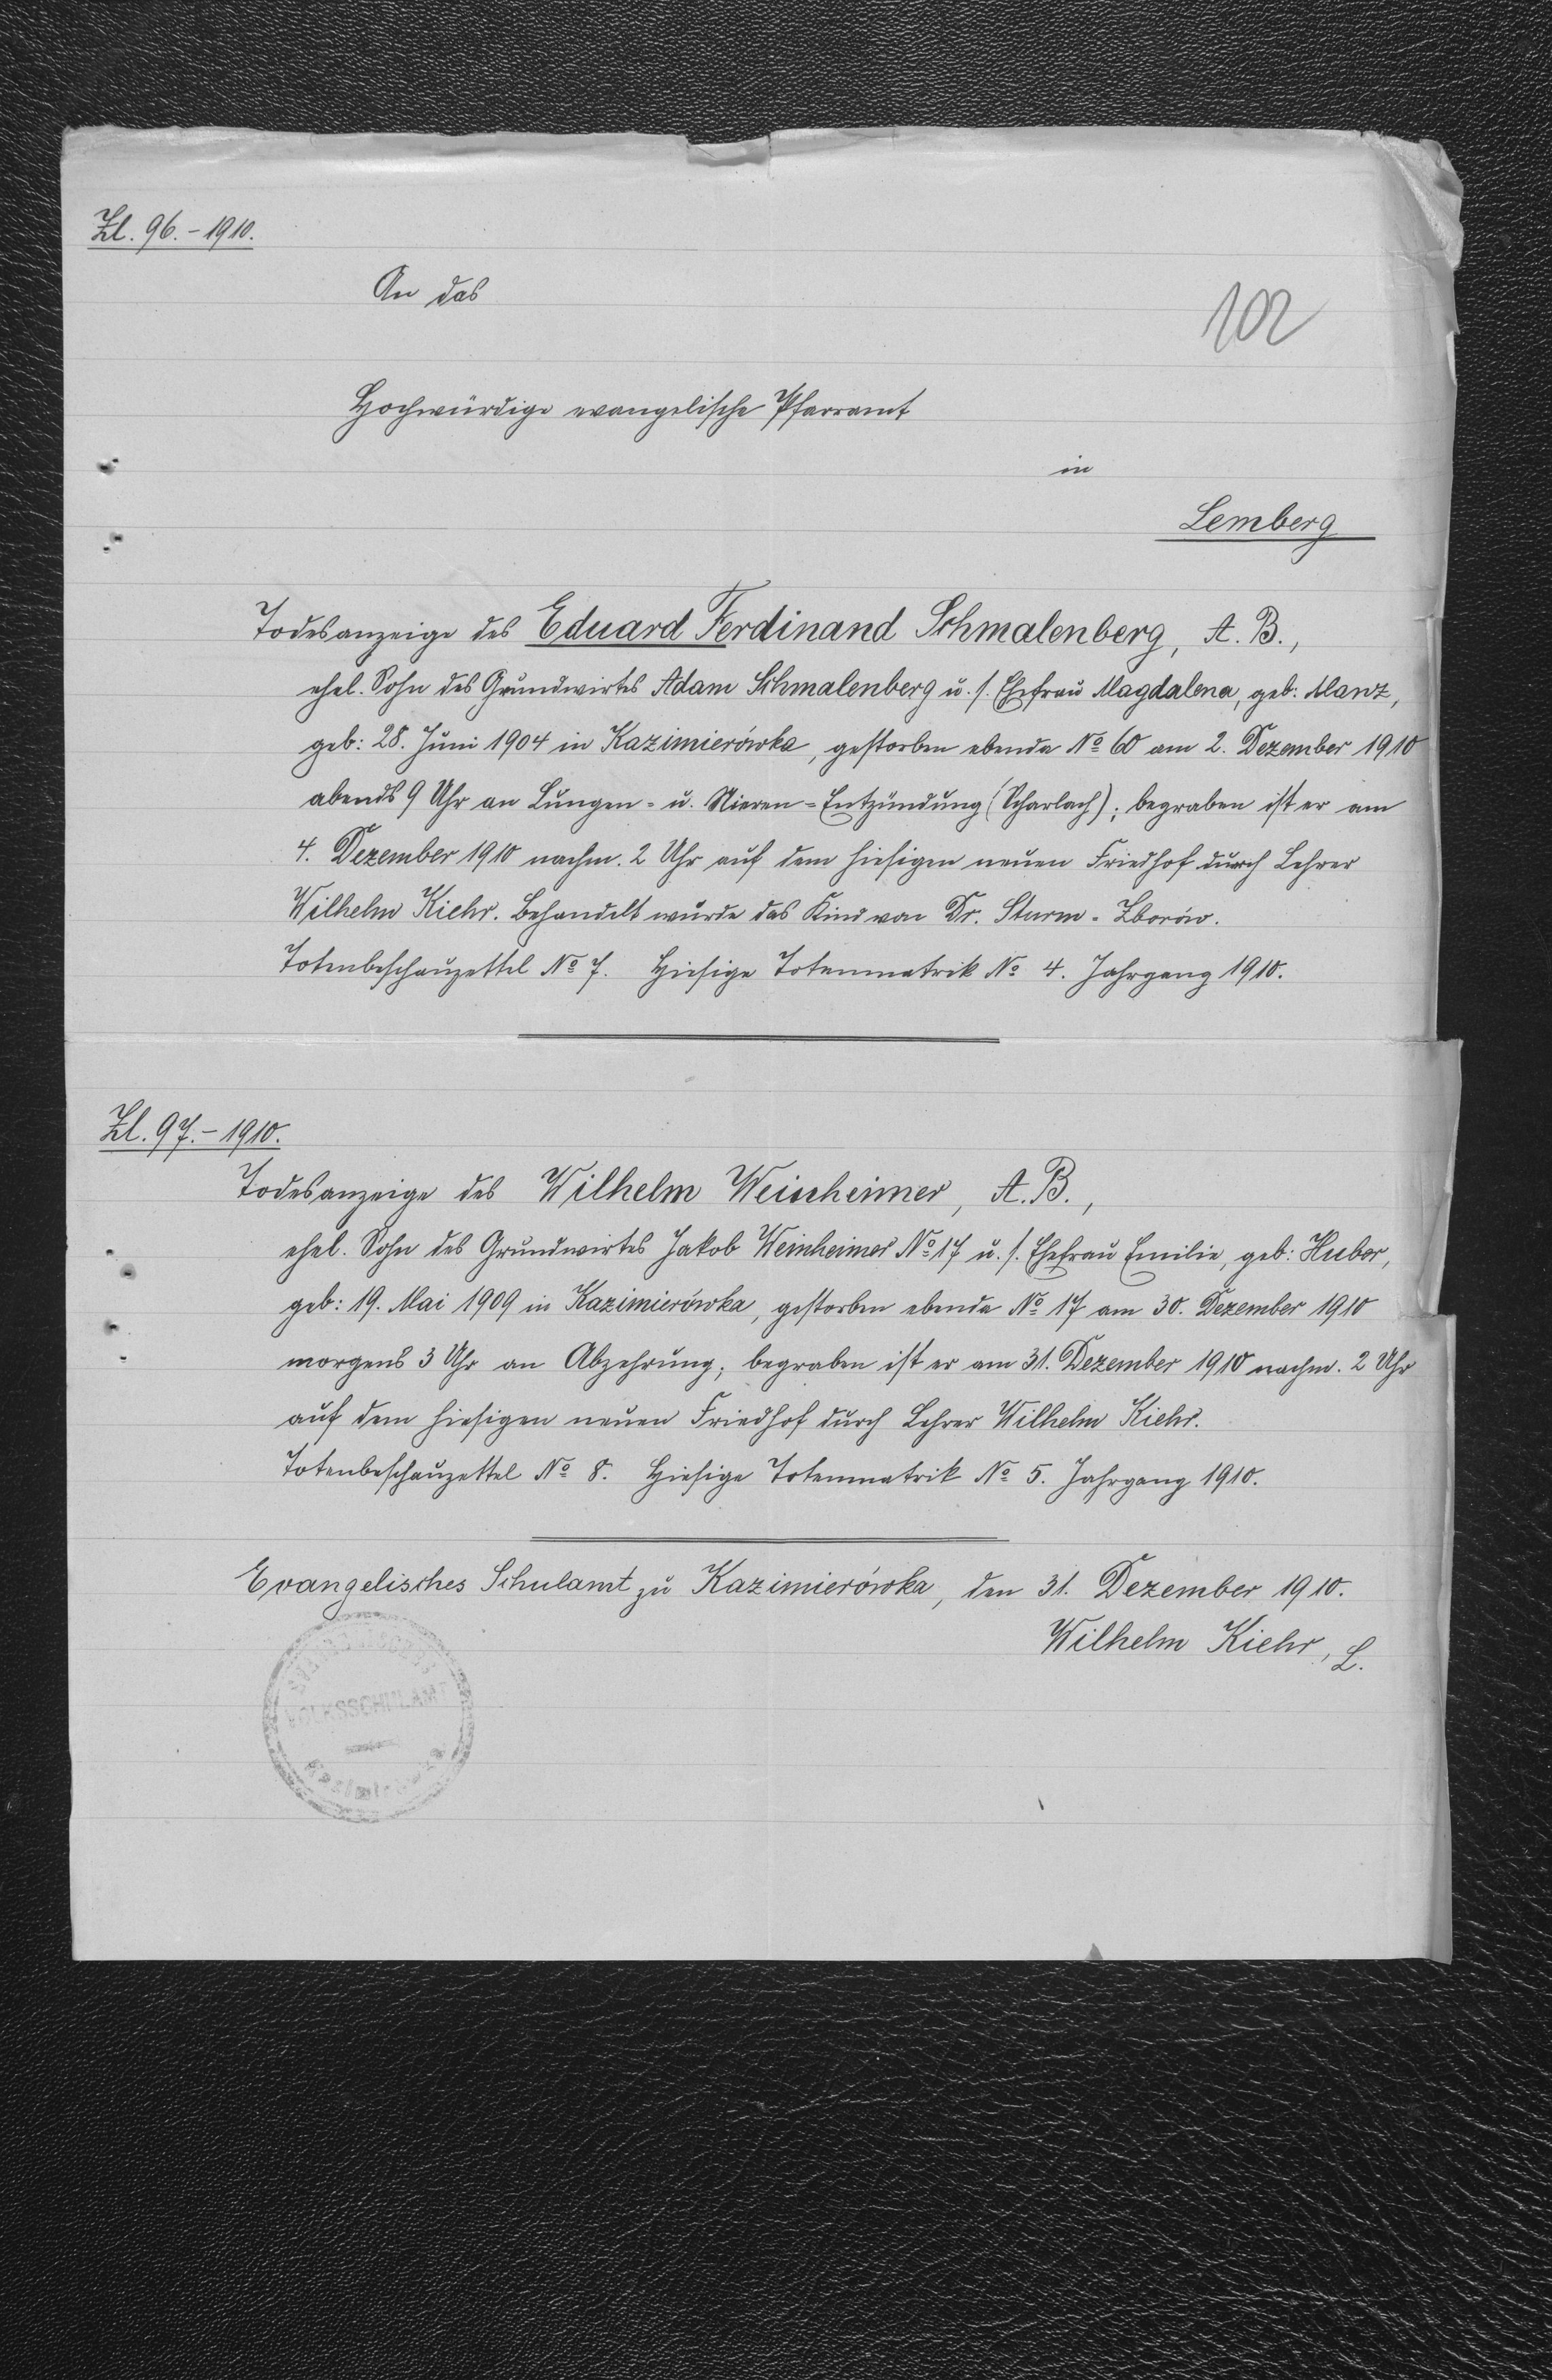 Zl. 96.-1910.
An das
102
Hochwürdige evangelische Pfarramt
in
Lemberg
Todesanzeige des Eduard Ferdinand Schmalenberg, A. B.,
ehel. Sohn des Grundwirtes Adam Schmalenberg u. s. Ehefrau Magdalena, geb: Manz,
geb: 28. Juni 1904 in Kazimierówka, gestorben ebenda No 60 am 2. Dezember 1910
abends 9 Uhr an Lungen- u. Nieren-Entzündung (Scharlach); begraben ist er am
4. Dezember 1910 nachm. 2 Uhr auf dem hiesigen neuen Friedhof durch Lehrer
Wilhelm Kiehr. Behandelt wurde das Kind von Dr. Sturm - Zborów.
Totenbeschauzettel No 7. Hiesige Totenmatrik No 4. Jahrgang 1910.
Zl. 97.-1910.
Todesanzeige des Wilhelm Weinheimer, A. B.,
ehel. Sohn des Grundwirtes Jakob Weinheimer No 17 u. s. Ehefrau Emilie, geb: Huber,
geb: 19. Mai 1909 in Kazimierówka, gestorben ebenda No 17 am 30. Dezember 1910
morgens 3 Uhr an Abzehrung; begraben ist er am 31. Dezember 1910 nachm. 2 Uhr
auf dem hiesigen neuen Friedhof durch Lehrer Wilhelm Kiehr.
Totenbeschauzettel No 8. Hiesige Totenmatrik No 5. Jahrgang 1910.
Evangelisches Schulamt zu Kazimierówka, den 31. Dezember 1910.
Wilhelm Kiehr, L.
VOLKSSCHULAMT